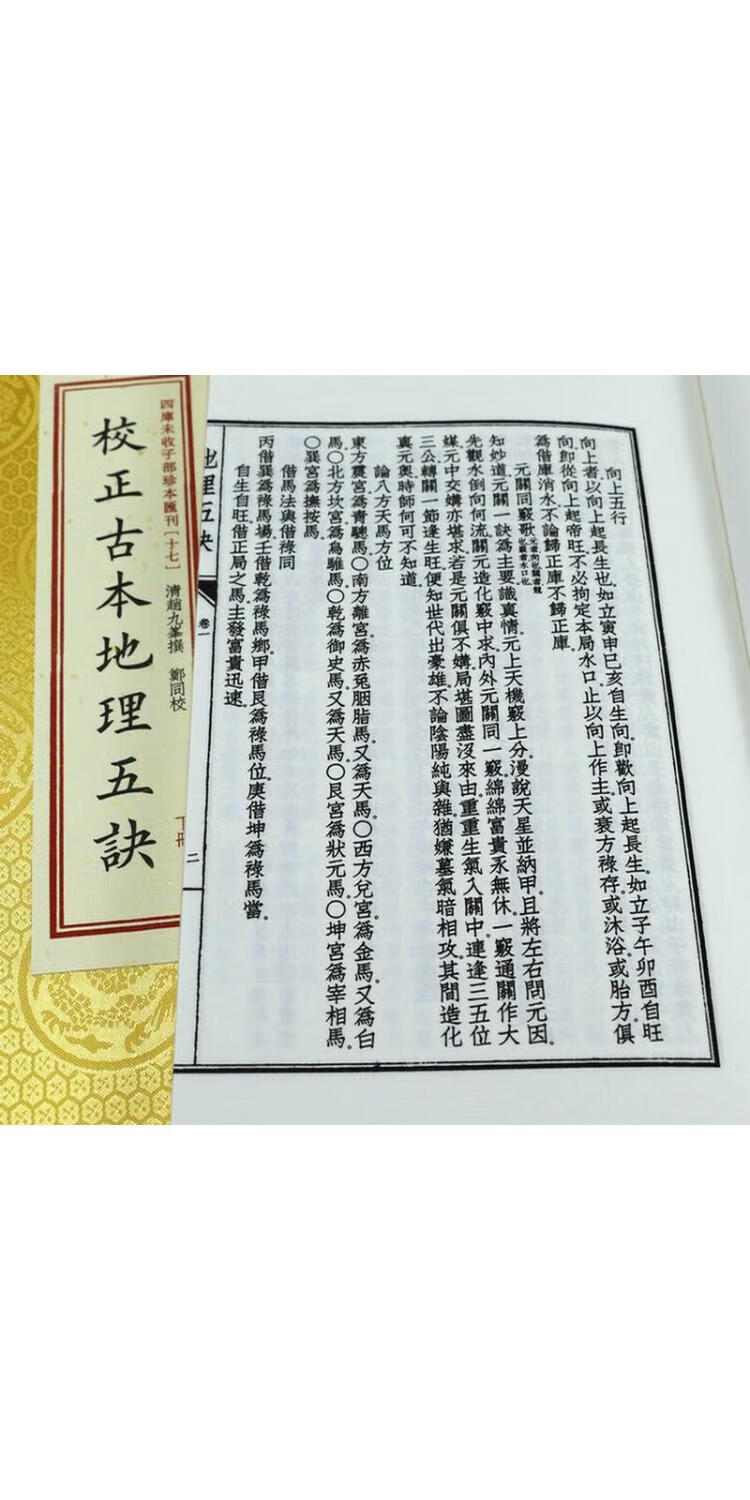 向上五行
向上者以向上起長生也如立寅申巳亥自生向卽歡向上起長生如立子午卯酉自旺
向卽從向上起帝旺不必拘定本局水口止以向上作主或衰方祿存或沐浴或胎方俱
爲借庫消水不論歸正庫不歸正庫
元關同竅歌
知妙道元關一訣爲主要識眞情元上天機竅上分漫說天星並納甲且將左右問元因
先觀水倒向何流關元造化竅中求內外元關同一竅綿綿富貴永無休一竅通關作大
媒元中交媾亦堪求若是元關俱不媾局堪圖盡沒來由重重生氣入關中連逢三五位
三公轉關一節逢生旺便知世代出豪雄不論陰陽純與雜猶嫌墓氣暗相攻其間造化
眞元奧時師何可不知道
論八方天馬方位
東方震宮爲青驄馬〇南方離宮爲赤兎胭脂馬又爲天馬〇西方兌宮爲金馬又爲白
馬〇北方坎宮爲烏騅馬〇乾爲御史馬又爲天馬〇艮宮爲狀元馬〇坤宮爲宰相馬
〇巽宮爲撫按馬
借馬法與借祿同
丙借巽爲祿馬場壬借乾爲祿馬鄉甲借艮爲祿馬位庚借坤爲祿馬當
自生自旺借正局之馬主發富貴迅速
地理五訣
卷一
二
四庫未收子部珍本匯刊［十七］
清趙九峯撰 鄭同校
校正古本地理五訣
下冊